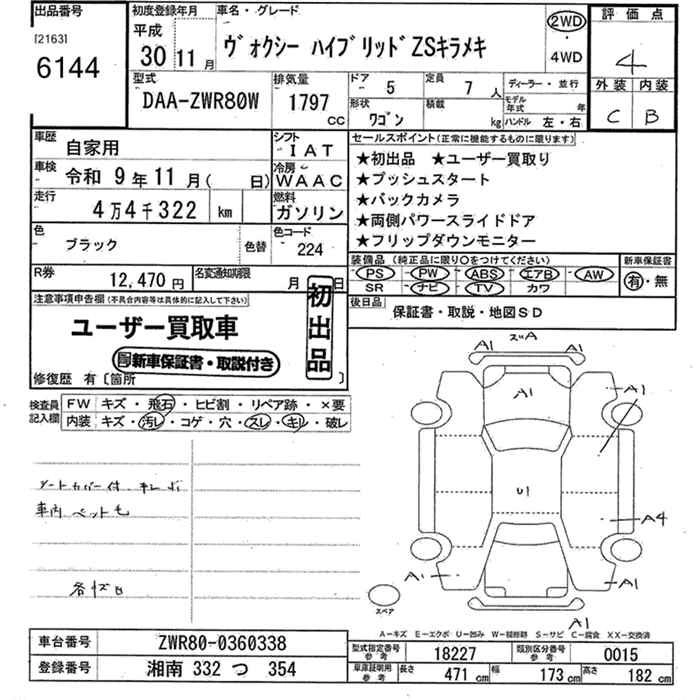 出品番号
[2163]
6144
初度登録年月
平成
30 11 月
車名・グレード
ヴォクシー ハイブリッドZSキラメキ
2WD
・
4WD
評価点
4
外装 内装
C B
型式
DAA-ZWR80W
排気量
1797
CC
ドア
5
定員
7 人
形状
ワゴン
積載
kg
ディーラー・並行
モデル年式 年
ハンドル 左・右
車歴
自家用
シフト
IAT
車検
令和 9 年 11 月( 日)
冷房
WAAC
走行
4万4千322 km
燃料
ガソリン
色
ブラック
色替
色コード
224
R券
12,470 円
名変通知期限
月 日
セールスポイント(正常に機能するものに限ります)
★初出品 ★ユーザー買取り
★プッシュスタート
★バックカメラ
★両側パワースライドドア
★フリップダウンモニター
装備品 (純正品に限り〇をつけてください)
PS PW ABS エアB AW
SR ナビ TV カワ
新車保証書
有・無
後日品
保証書・取説・地図SD
注意事項申告欄(不具合内容等は具体的に記入して下さい)
ユーザー買取車
新車保証書・取説付き
初出品
修復歴 有〔箇所 〕
検査員記入欄
FW キズ・飛石・ヒビ割・リペア跡・×要
内装 キズ・汚レ・コゲ・穴・スレ・キレ・破レ
シートカバー付
車内
A1 A1
A1
A1
U1
A4
A1
A1
A1
スペア
A－キズ E－エクボ U－凹み W－補修跡 S－サビ C－腐食 XX－交換済
車台番号
ZWR80-0360338
登録番号
湘南 332 つ 354
型式指定番号
参考
18227
類別区分番号
参考
0015
車庫証明用
参考
長さ 471 cm 幅 173 cm 高さ 182 cm